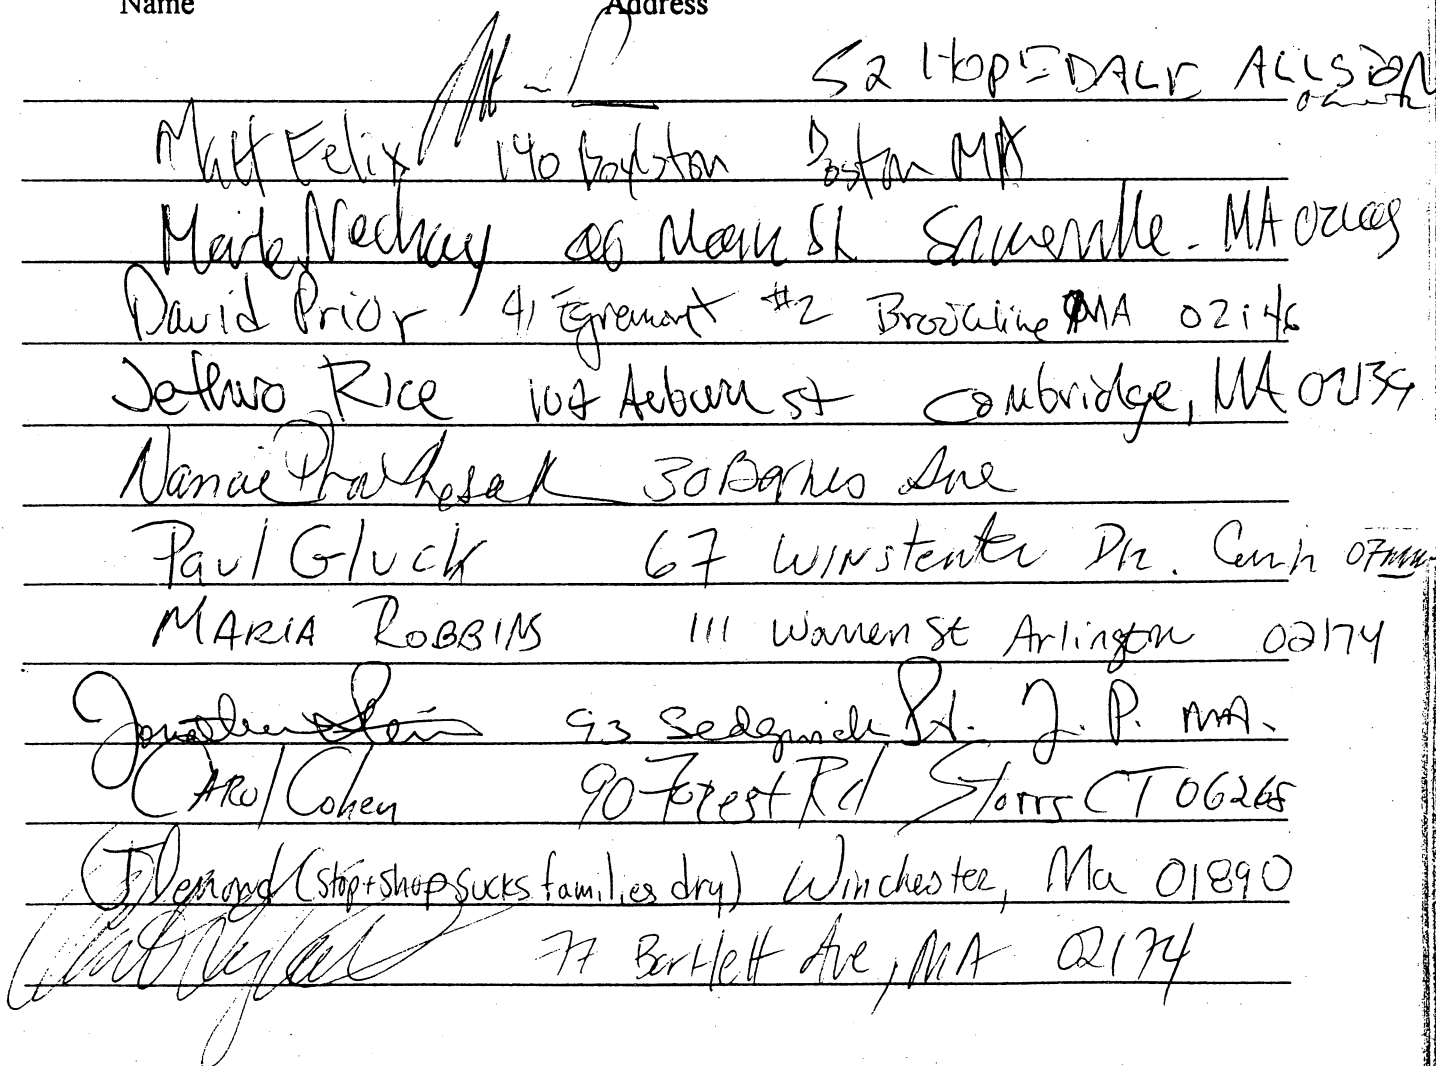 Name Address
52 HOPEDALE ALLSTON
Matt Felix 140 Boylston Boston MA
St Somerville. MA
David Prior 41 Egremont #2 Brookline MA 02146
Jethro Rice Auburn st Cambridge, MA 02139
30 Barnes Ave
Paul Gluck 67 Dr.
MARIA ROBBINS 111 Warren St Arlington 02174
Jonathan Stein 93 Sedgwick St. J.P. MA.
CAROL Cohen 90 Forest Rd Storrs CT 06268
J Demond (stop+shop sucks families dry) Winchester, Ma 01890
77 Bartlett Ave, MA 02174